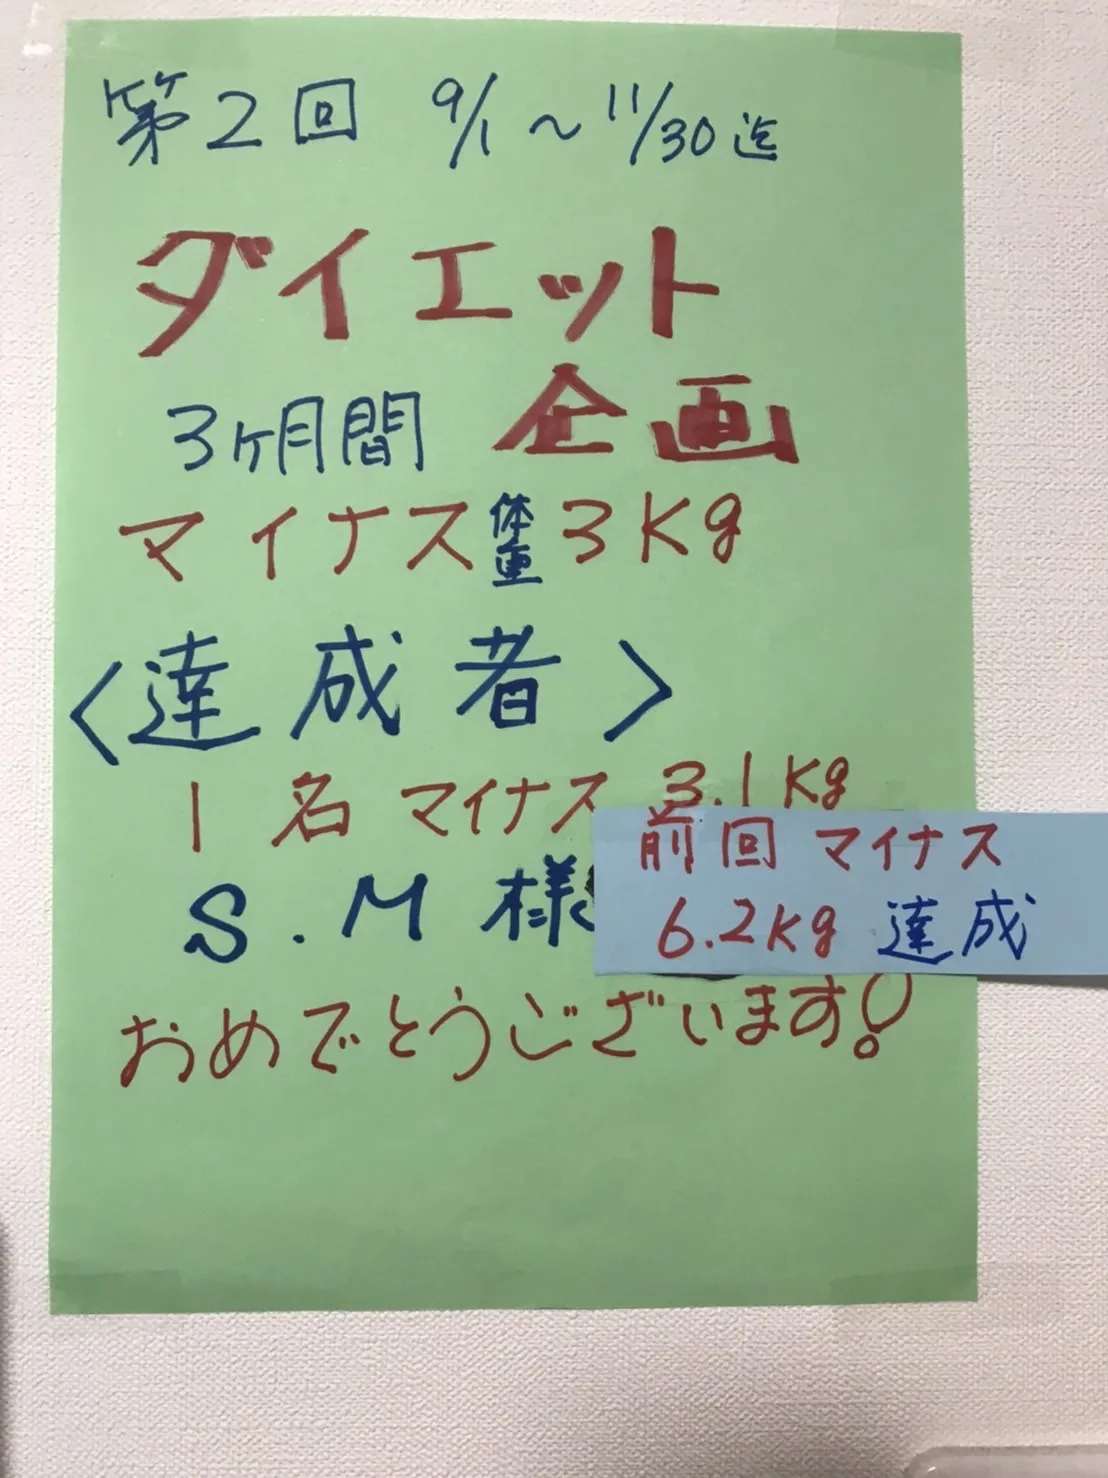 第2回 9/1～11/30迄
ダイエット
3ヶ月間 企画
マイナス体重3Kg
〈達成者〉
1名 マイナス 3.1Kg
S.M様
前回 マイナス
6.2Kg 達成
おめでとうございます!